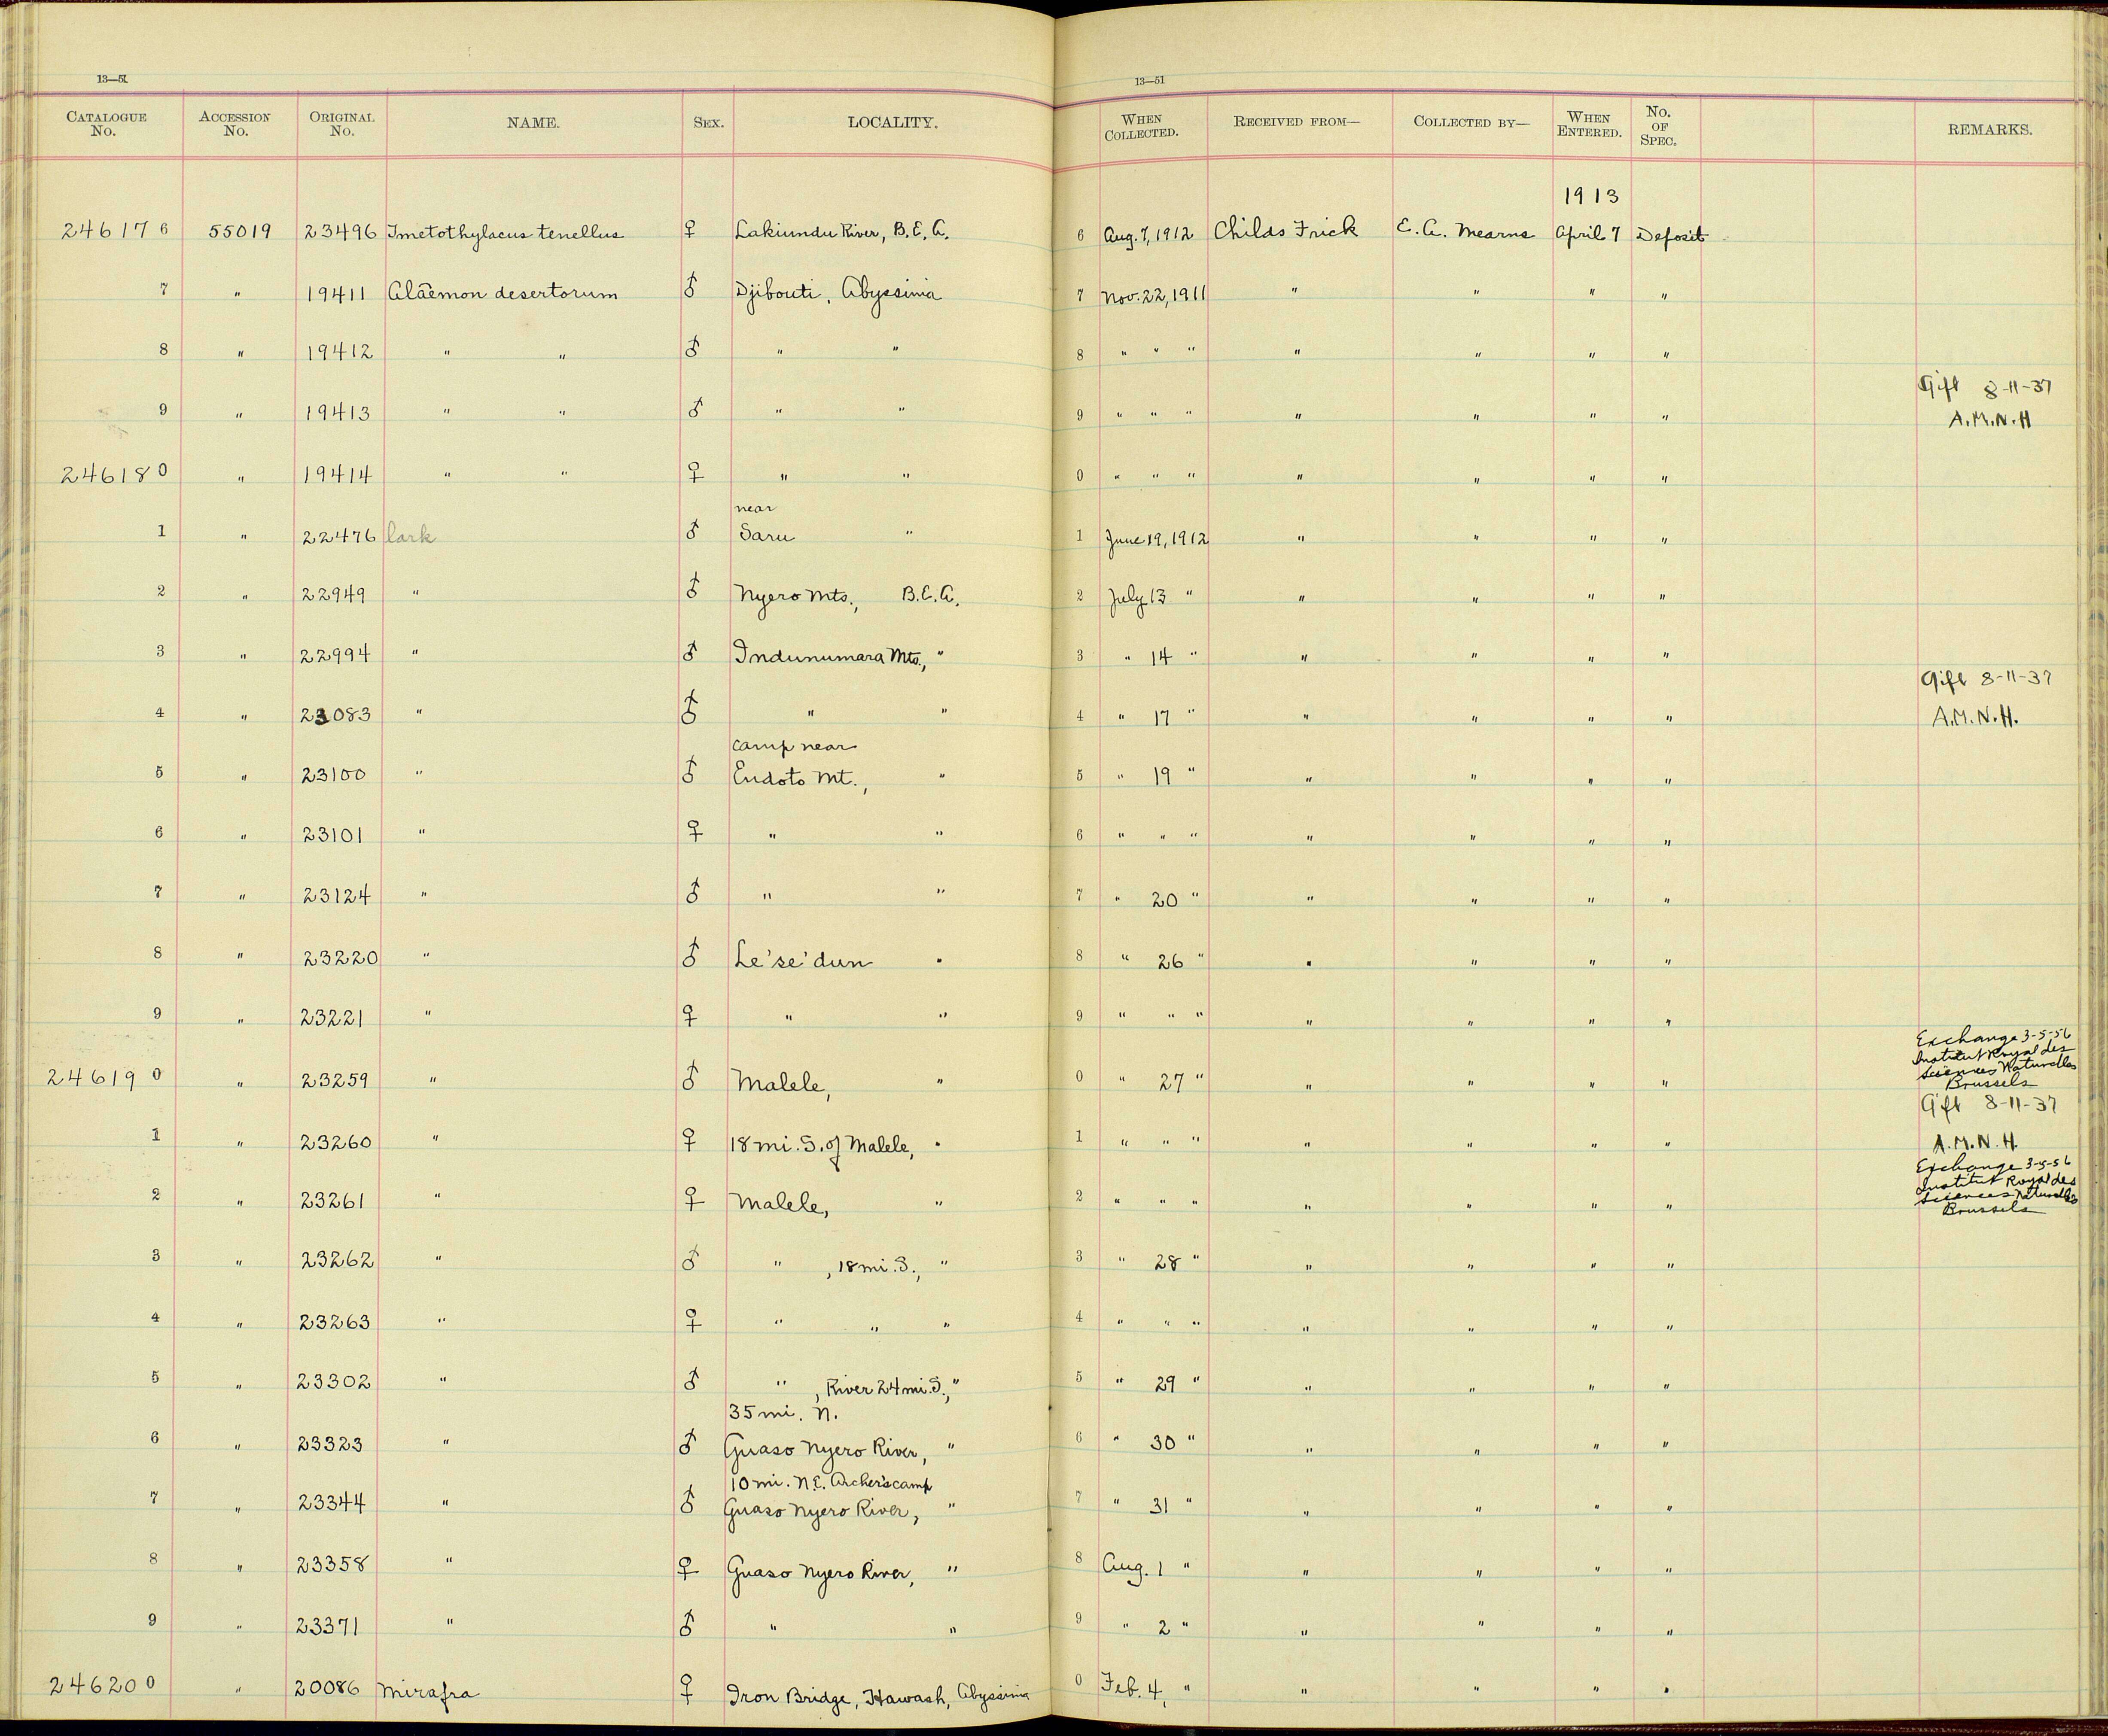 13—51
13—51
CATALOGUE No. ACCESSION No. ORIGINAL No. NAME. SEX. LOCALITY. WHEN COLLECTED. RECEIVED FROM— COLLECTED BY— WHEN ENTERED. No. OF SPEC. REMARKS.
1913
246176 55019 23496 Tmetothylacus tenellus ♀ Lakiundu River, B.E.A. 6 Aug. 7, 1912 Childs Frick E. A. Mearns April 7 Deposit
7 " 19411 Alaemon desertorum ♂ Djibouti, Abyssinia 7 Nov. 22, 1911 " " " "
8 " 19412 " " ♂ " " 8 " " " " " " "
Gift 8-11-37
9 " 19413 " " ♂ " " 9 " " " " " " " A.M.N.H
246180 " 19414 " " ♀ " " 0 " " " " " " "
near
1 " 22476 lark ♂ Saru " 1 June 19, 1912 " " " "
2 " 22949 " ♂ Nyero Mts., B.E.A. 2 July 13 " " " " "
3 " 22994 " ♂ Indunumara Mts., " 3 " 14 " " " " "
Gift 8-11-37
4 " 23083 " ♂ " " 4 " 17 " " " " " A.M.N.H.
camp near
5 " 23100 " ♂ Endoto Mt., " 5 " 19 " " " " "
6 " 23101 " ♀ " " 6 " " " " " " "
7 " 23124 " ♂ " " 7 " 20 " " " " "
8 " 23220 " ♂ Le'se'dun " 8 " 26 " " " " "
9 " 23221 " ♀ " " 9 " " " " " " "
Exchange 3-5-56
Institut Royal des
Sciences Naturelles
246190 " 23259 " ♂ Malele, " 0 " 27 " " " " " Brussels
Gift 8-11-37
1 " 23260 " ♀ 18 mi. S. of Malele, " 1 " " " " " " " A.M.N.H.
Exchange 3-5-56
Institut Royal des
Sciences Naturelles
2 " 23261 " ♀ Malele, " 2 " " " " " " " Brussels
3 " 23262 " ♂ " , 18 mi. S., " 3 " 28 " " " " "
4 " 23263 " ♀ " " " 4 " " " " " " "
5 " 23302 " ♂ " , River 24 mi. S., " 5 " 29 " " " " "
35 mi. N.
6 " 23323 " ♂ Guaso Nyero River, " 6 " 30 " " " " "
10 mi. N.E. Archer's camp
7 " 23344 " ♂ Guaso Nyero River, " 7 " 31 " " " " "
8 " 23358 " ♀ Guaso Nyero River, " 8 Aug. 1 " " " " "
9 " 23371 " ♂ " " 9 " 2 " " " " "
246200 " 20086 Mirafra ♀ Iron Bridge, Hawash, Abyssinia 0 Feb. 4, " " " " "